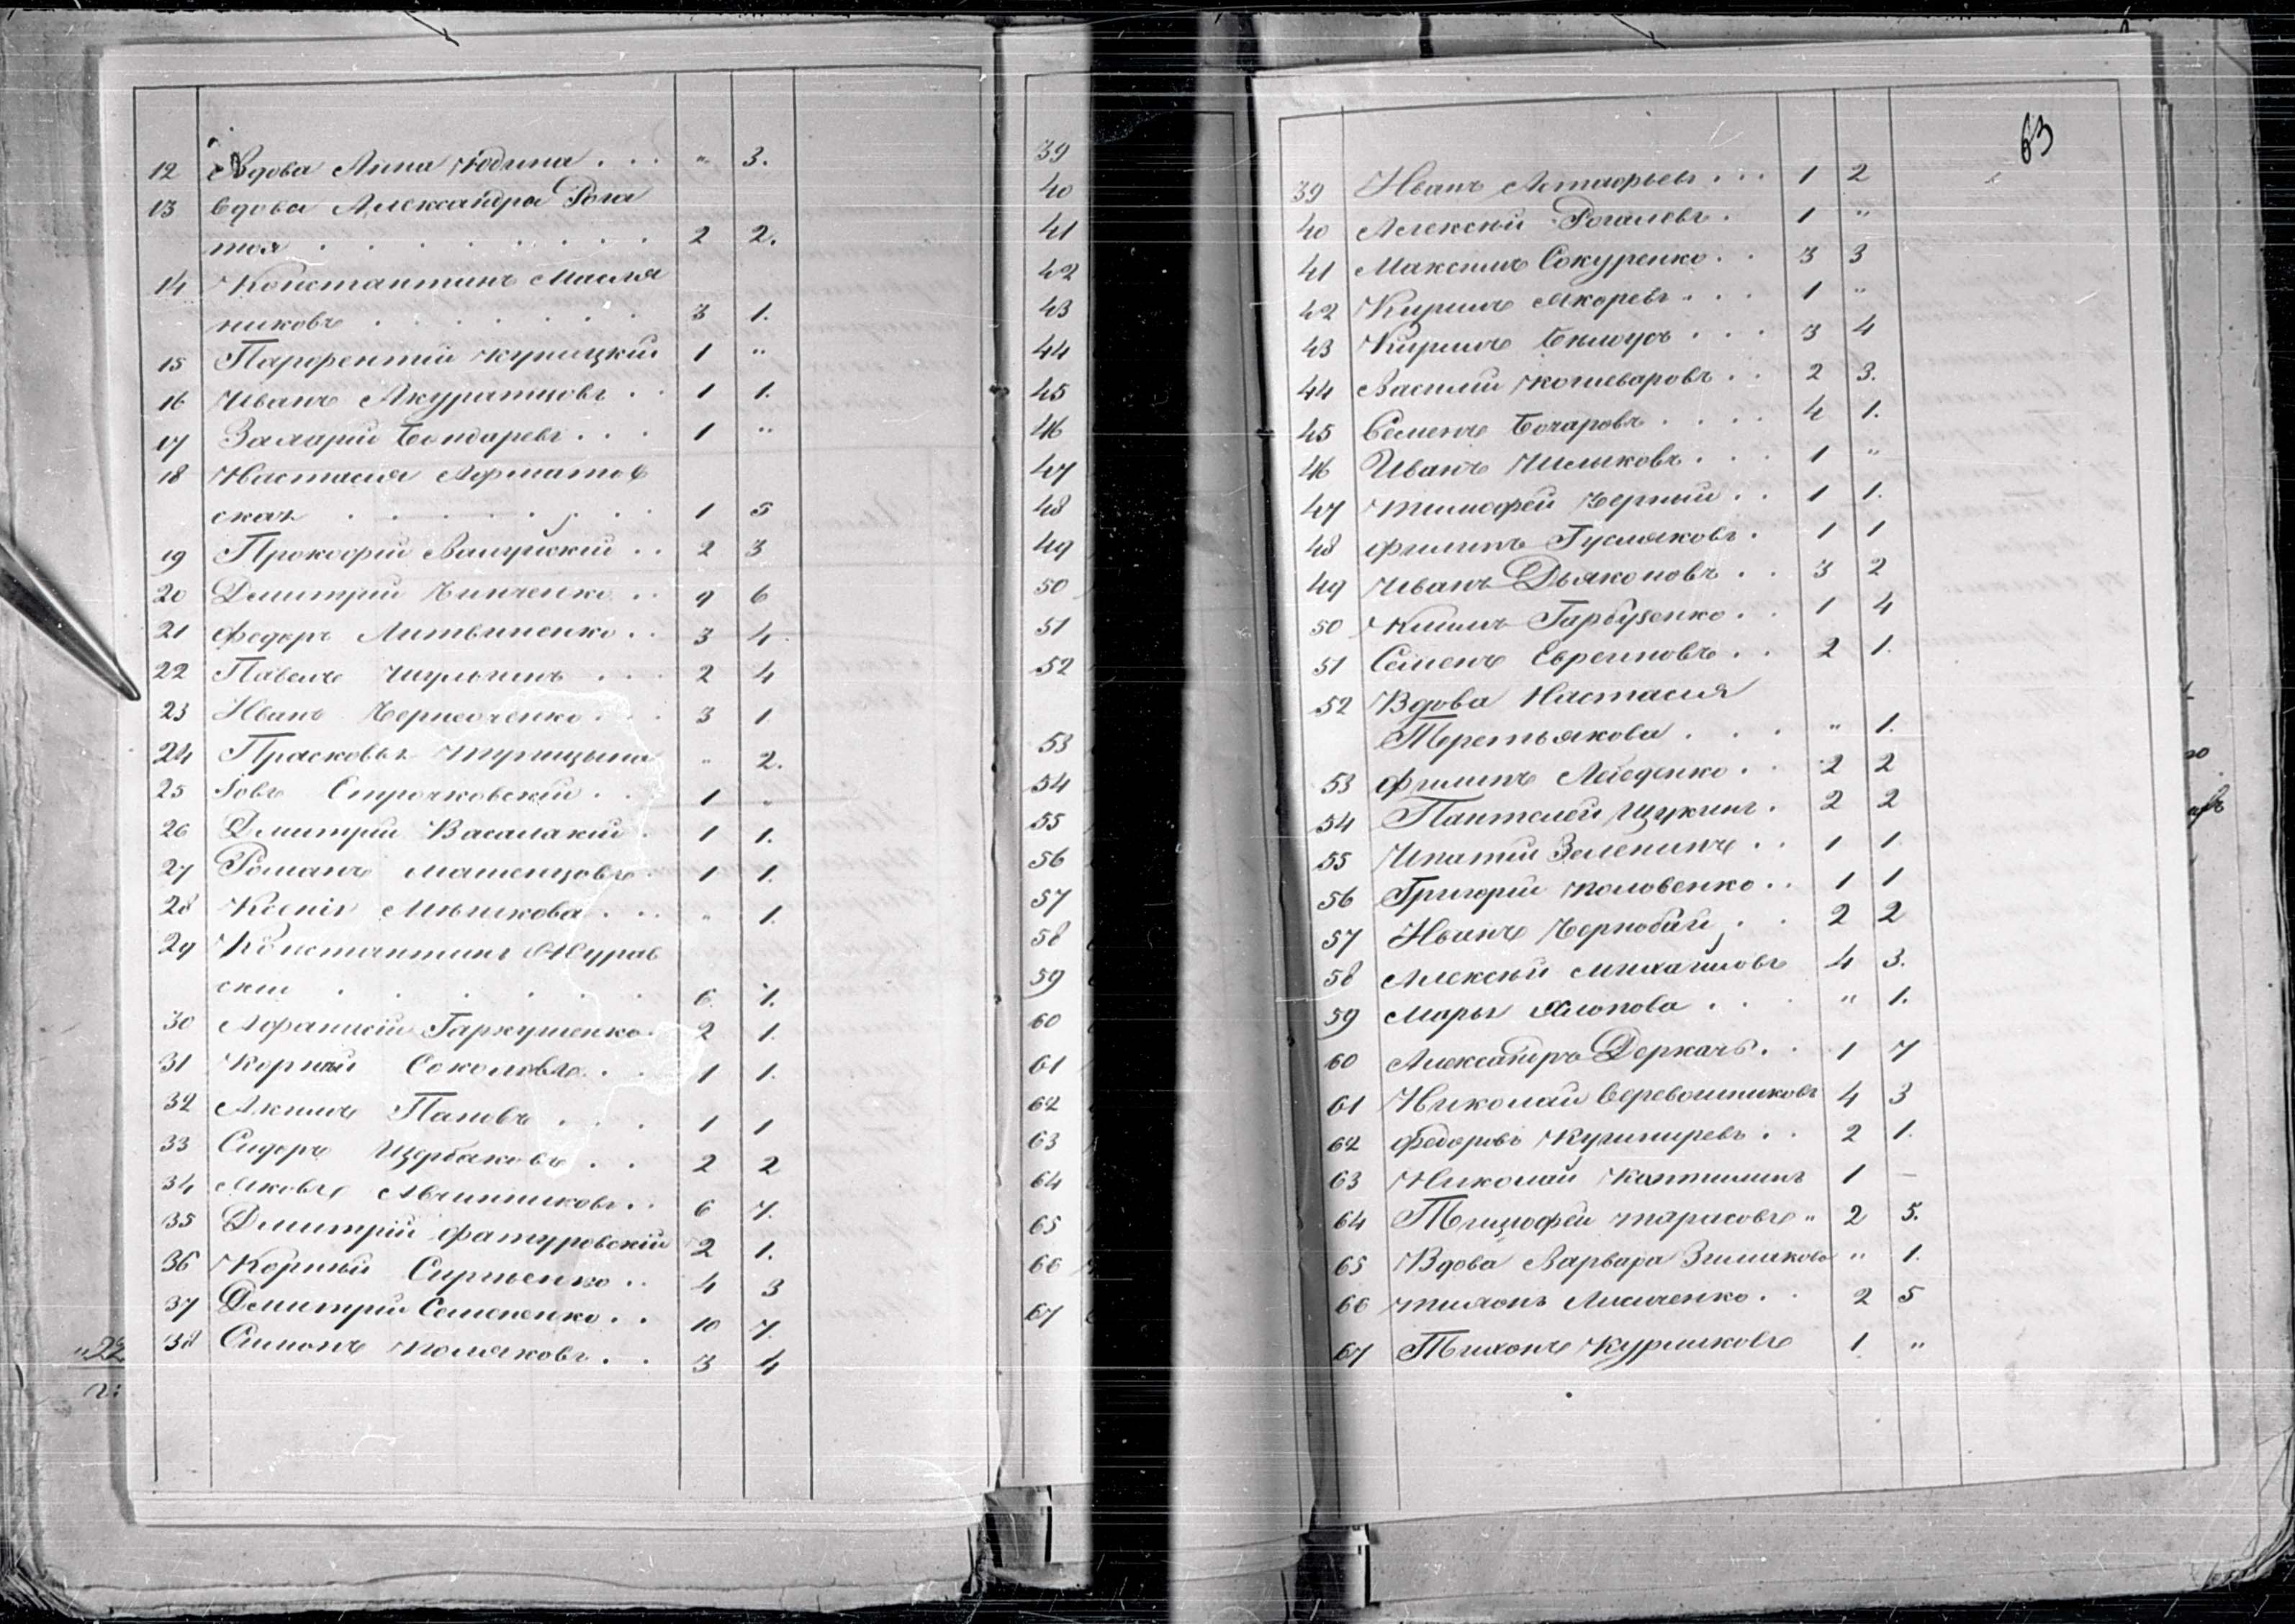 12 Вдова Анна Юдина . . . " 3.
13 Вдова Александра Рога
тоя . . . . . . . . 2 2.
14 Константинъ Масля
никовъ . . . . . . . 3 1.
15 Парфентій Куницкій 1 "
16 Иванъ Акуратновъ . . 1 1.
17 Захарій Бондаревъ . . . 1 "
18 Настасия
ская . . . . . . . 1 5
19 Прокофій Валуйскій . . 2 3
20 Дмитрій Зинченко . . 9 6
21 Федоръ Литвиненко . . 3 4.
22 Павелъ Шульгинъ . . . 2 4
23 Иванъ . . . 3 1
24 Прасковья Турицына " 2.
25 Іовъ Строчковскій . . 1 "
26 Дмитрій Васалакій . 1 1.
27 Романъ . 1 1.
28 Ксенія Мѣшкова . . . " 1.
29 Константинъ Журав
скій . . . . . . 6 7.
30 Афанасій Гаркушенко . 2 1.
31 Корнѣй Соколовъ . . 1 1.
32 Акимъ Поповъ . . . 1 1
33 Сидоръ Щербаковъ . . 2 2
34 Яковъ Авчинниковъ . . 6 7.
35 Дмитрій Фатуровскій 2 1.
36 Корнѣй Сиргіенко . . 4 3
37 Дмитрій Семененко . . 10 7.
38 Симонъ Поляковъ . . 3 4
39
40
41
42
43
44
45
46
47
48
49
50
51
52
53
54
55
56
57
58
59
60
61
62
63
64
65
66
67
63
39 Иванъ Астафьевъ . . . 1 2
40 Алексѣй Рогалевъ . 1 "
41 Максимъ Сокуренко . . 3 3
42 Кирилъ Якоревъ . . . 1 "
43 Кирилъ Бѣлоусъ . . . 3 4
44 Василій Кошеваровъ . . 2 3.
45 Семенъ Бочаровъ . . . . 4 1.
46 Иванъ . . . 1 "
47 Тимофей Черный . . 1 1.
48 Филипъ Гусляковъ . 1 1
49 Иванъ Дьяконовъ . . 3 2
50 Климъ Гарбузенко . . 1 4
51 Семенъ Евреиновъ . . 2 1.
52 Вдова Настасия
Теретьякова . . . " 1.
53 Филипъ Лебеденко . . 2 2
54 Пантелей Щукинъ . 2 2
55 Ипатій Зеленинъ . . 1 1
56 Григорій Половенко . . 1 1
57 Иванъ Чернобай . . 2 2
58 Алексѣй Михайловъ 4 3.
59 Марья Хлопова . . . " 1.
60 Александръ Деркачъ . . 1 7
61 Николай Веревошниковъ 4 3
62 Федоровъ . . 2 1.
63 Николай Каптилинъ 1 —
64 Тимофей Тарасовъ " 2 5.
65 Вдова Варвара " 1.
66 Тихонъ Лисиченко . . 2 5
67 Тихонъ Курликовъ 1 "